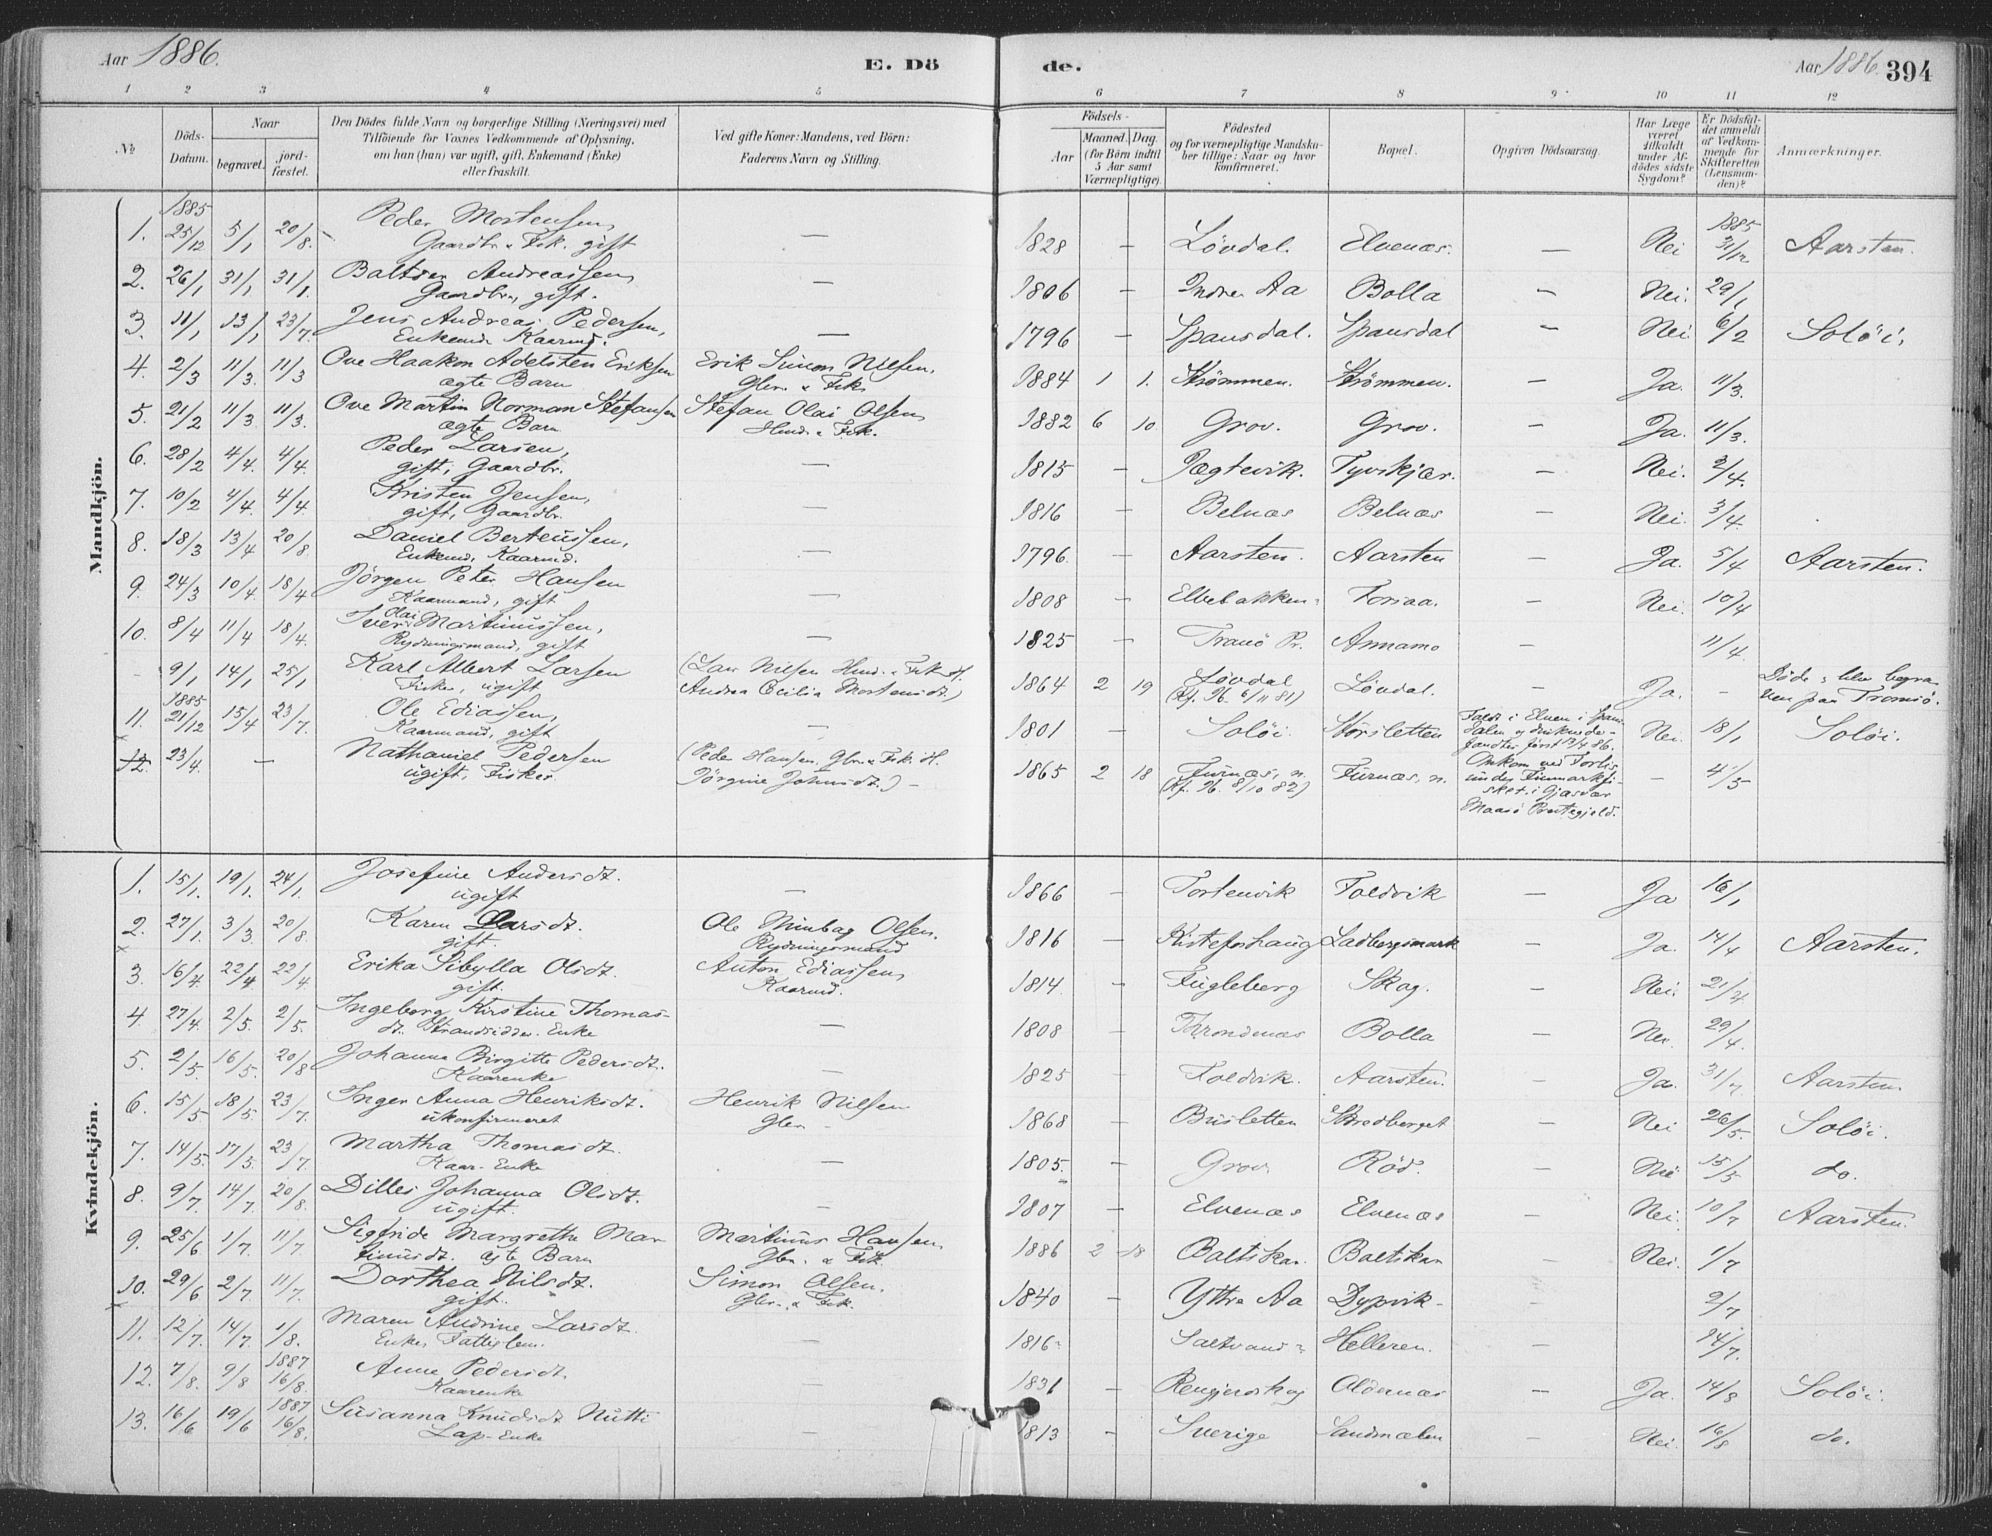 Aar 1886. E. Dö de. Aar 1886. 394
1 2 3 4 5 6 7 8 9 10 11 12
№
Döds-
Datum.
Naar
begravet.
jord-
fæstet.
Den Dödes fulde Navn og borgerlige Stilling (Næringsvei) med
Tilföiende for Voxnes Vedkommende af Oplysning,
om han (hun) var ugift, gift, Enkemand (Enke)
eller fraskilt.
Ved gifte Koner: Mandens, ved Börn:
Faderens Navn og Stilling.
Födsels-
Aar
Maaned. Dag.
(for Börn indtil
5 Aar samt
Værnepligtige).
Födested
og for værnepligtige Mandska-
ber tillige: Naar og hvor
konfirmeret.
Bopæl.
Opgiven Dödsaarsag.
Har Læge
været
tilkaldt
under Af-
dödes sidste
Sygdom?
Er Dödsfal-
det anmeldt
af Vedkom-
mende for
Skifteretten
(Lensman-
den)?
Anmærkninger.
Mandkjön.
1885 1885
1. 25/12 5/1 20/8. Peder Mortensen, — 1828 — Lövdal. Elvenæs. — Nei 31/12 Aarsten.
Gaardbr. & Fisk. gift
2. 26/1 31/1 31/1. Baltser Andreassen, — 1806 — Indre Aa Bolla — Nei. 29/1
Gaardbr., gift.
3. 11/1 13/1 23/7 Jens Andreas Pedersen, — 1796 — Spansdal. Spansdal — Nei. 6/2 Soløi.
Enkemd. Kaarmd.
4. 2/3 11/3. 11/3 Ove Haakon Adelsten Eriksen Erik Simon Nilsen, 1884 1 1. Strömmen. Strömmen. — Ja. 11/3.
ægte Barn Gbr. & Fisk.
5. 21/2 11/3. 11/3. Ove Martin Norman Stefansen Stefan Olai Olsen, 1882 6 10 Grov. Grov. — Ja. 11/3.
ægte Barn Hmd. & Fisk.
6. 28/2 4/4. 4/4. Peder Larsen, — 1815 — Jægtevik. Tyvskjær. — Nei. 2/4.
gift, Gaardbr.
7. 10/2 4/4. 4/4 Kristen Jensen, — 1816 — Belnæs Belnæs — Nei. 3/4.
gift, Gaardbr.
8. 18/3 13/4 20/8 Daniel Berteussen, — 1796. — Aarsten. Aarsten — Ja. 5/4 Aarsten.
Enkemd, Kaarmd.
9. 24/3 10/4. 18/4 Jörgen Peter Hansen — 1808 — Elvebakken Foraa. — Nei. 10/4
Kaarmand, gift
10. 8/4 11/4 18/4. Iver Olai Martinussen, — 1825 — Tranö Pr. Annamo — 11/4.
Rydningsmand, gift
- 9/1 14/1 25/1 Karl Albert Larsen (Lars Nilsen Hmd. & Fisk. H. 1864 2 19 Lövdal Lövdal. — Ja. — Döde & blev begra-
Fisker, ugift Andrea Cecilia Mortensdt.) (Kf. Ib. 6/11 81) ven paa Tromsö.
1885
11. 21/12 15/4 23/7 Ole Ediassen, — 1801 — Soløi. Storsletten Faldt i Elven i Spans- Nei. 18/1 Soløi.
Kaarmand, gift dalen og druknede -
fandtes först 13/4 86.
12. 23/4. — Nathaniel Pedersen (Peder Hansen, Gbr. & Fisk. H. 1865 2 18 Furnæs, n. Furnæs, n. Omkom ved Forlis — 4/5
ugift, Fisker Jörgine Johnsdt.) — (Kf. Ib. 8/10 82) under Finmarkfi-
sket i Gjæsvær
Maasö Prestegjeld.
Kvindekjön.
1. 15/1. 19/1. 24/1 Josefine Andersdt. — 1866 — Tortenvik Foldvik — Ja 16/1
ugift
2. 27/1. 3/3. 20/8. Karen Larsdt. Ole Mimbag Olsen. 1816 — Kistefoshaug Ladbergsmark — Ja. 14/4 Aarsten.
gift. Rydningsmand
3. 16/4 22/4 22/4 Erika Sibylla Olsdt. Anton Ediassen, 1814 — Fugleberg Skog. — Nei. 21/4
gift. Kaarmd.
4. 27/4. 2/5. 2/5. Ingeborg Kirstine Thomas- — 1808 — Throndenæs Bolla — Nei. 29/4.
dt. Strandsidder. Enke
5. 2/5. 16/5. 20/8 Johanna Birgitte Pedersdt. — 1825 — Foldvik. Aarsten. — Ja. 31/7 Aarsten.
Kaarenke
6. 15/5 18/5 23/7. Inger Anna Henriksdt. Henrik Nilsen 1868 — Brusletten Skredberget — Nei 26/5. Soløi.
ukonfirmeret Gbr. —
7. 14/5. 17/5. 23/7. Martha Thomasdt. — 1805. — Grov. Röd. — Nei 15/5 do.
Kaar-Enke
8. 9/7 14/7. 20/8. Dilles Johanna Olsdt. — 1807 — Elvenæs Elvenæs — Nei. 10/7 Aarsten.
ugift.
9. 25/6 1/7. 11/7 Sigfride Margrethe Mar- Martinus Hansen, 1886 2 18 Baltskar. Baltskar — Nei. 1/7
tinusdt. ægte Barn Gbr. & Fisk.
10. 29/6 2/7. 11/7. Dorthea Nilsdt. Simon Olsen. 1840 — Yttre Aa Dypvik — 9/7
gift. Gbr. & Fisk.
11. 12/7. 14/7. 1/8. Maren Andrine Larsdt. — 1816 — Sætvand Helleren. — 14/7.
Enke, Fattiglem.
1887
12. 7/8. 9/8 16/8. Anne Pedersdt. — 1831 — Rengjerskog Oldernæs — Ja. 14/8 Soløi.
Kaarenke
1887
13. 16/6 19/6 16/8. Susanna Knudsdt Nutti — 1813 — Sverige Sandmælen — Nei. 16/8 do.
Lap-Enke